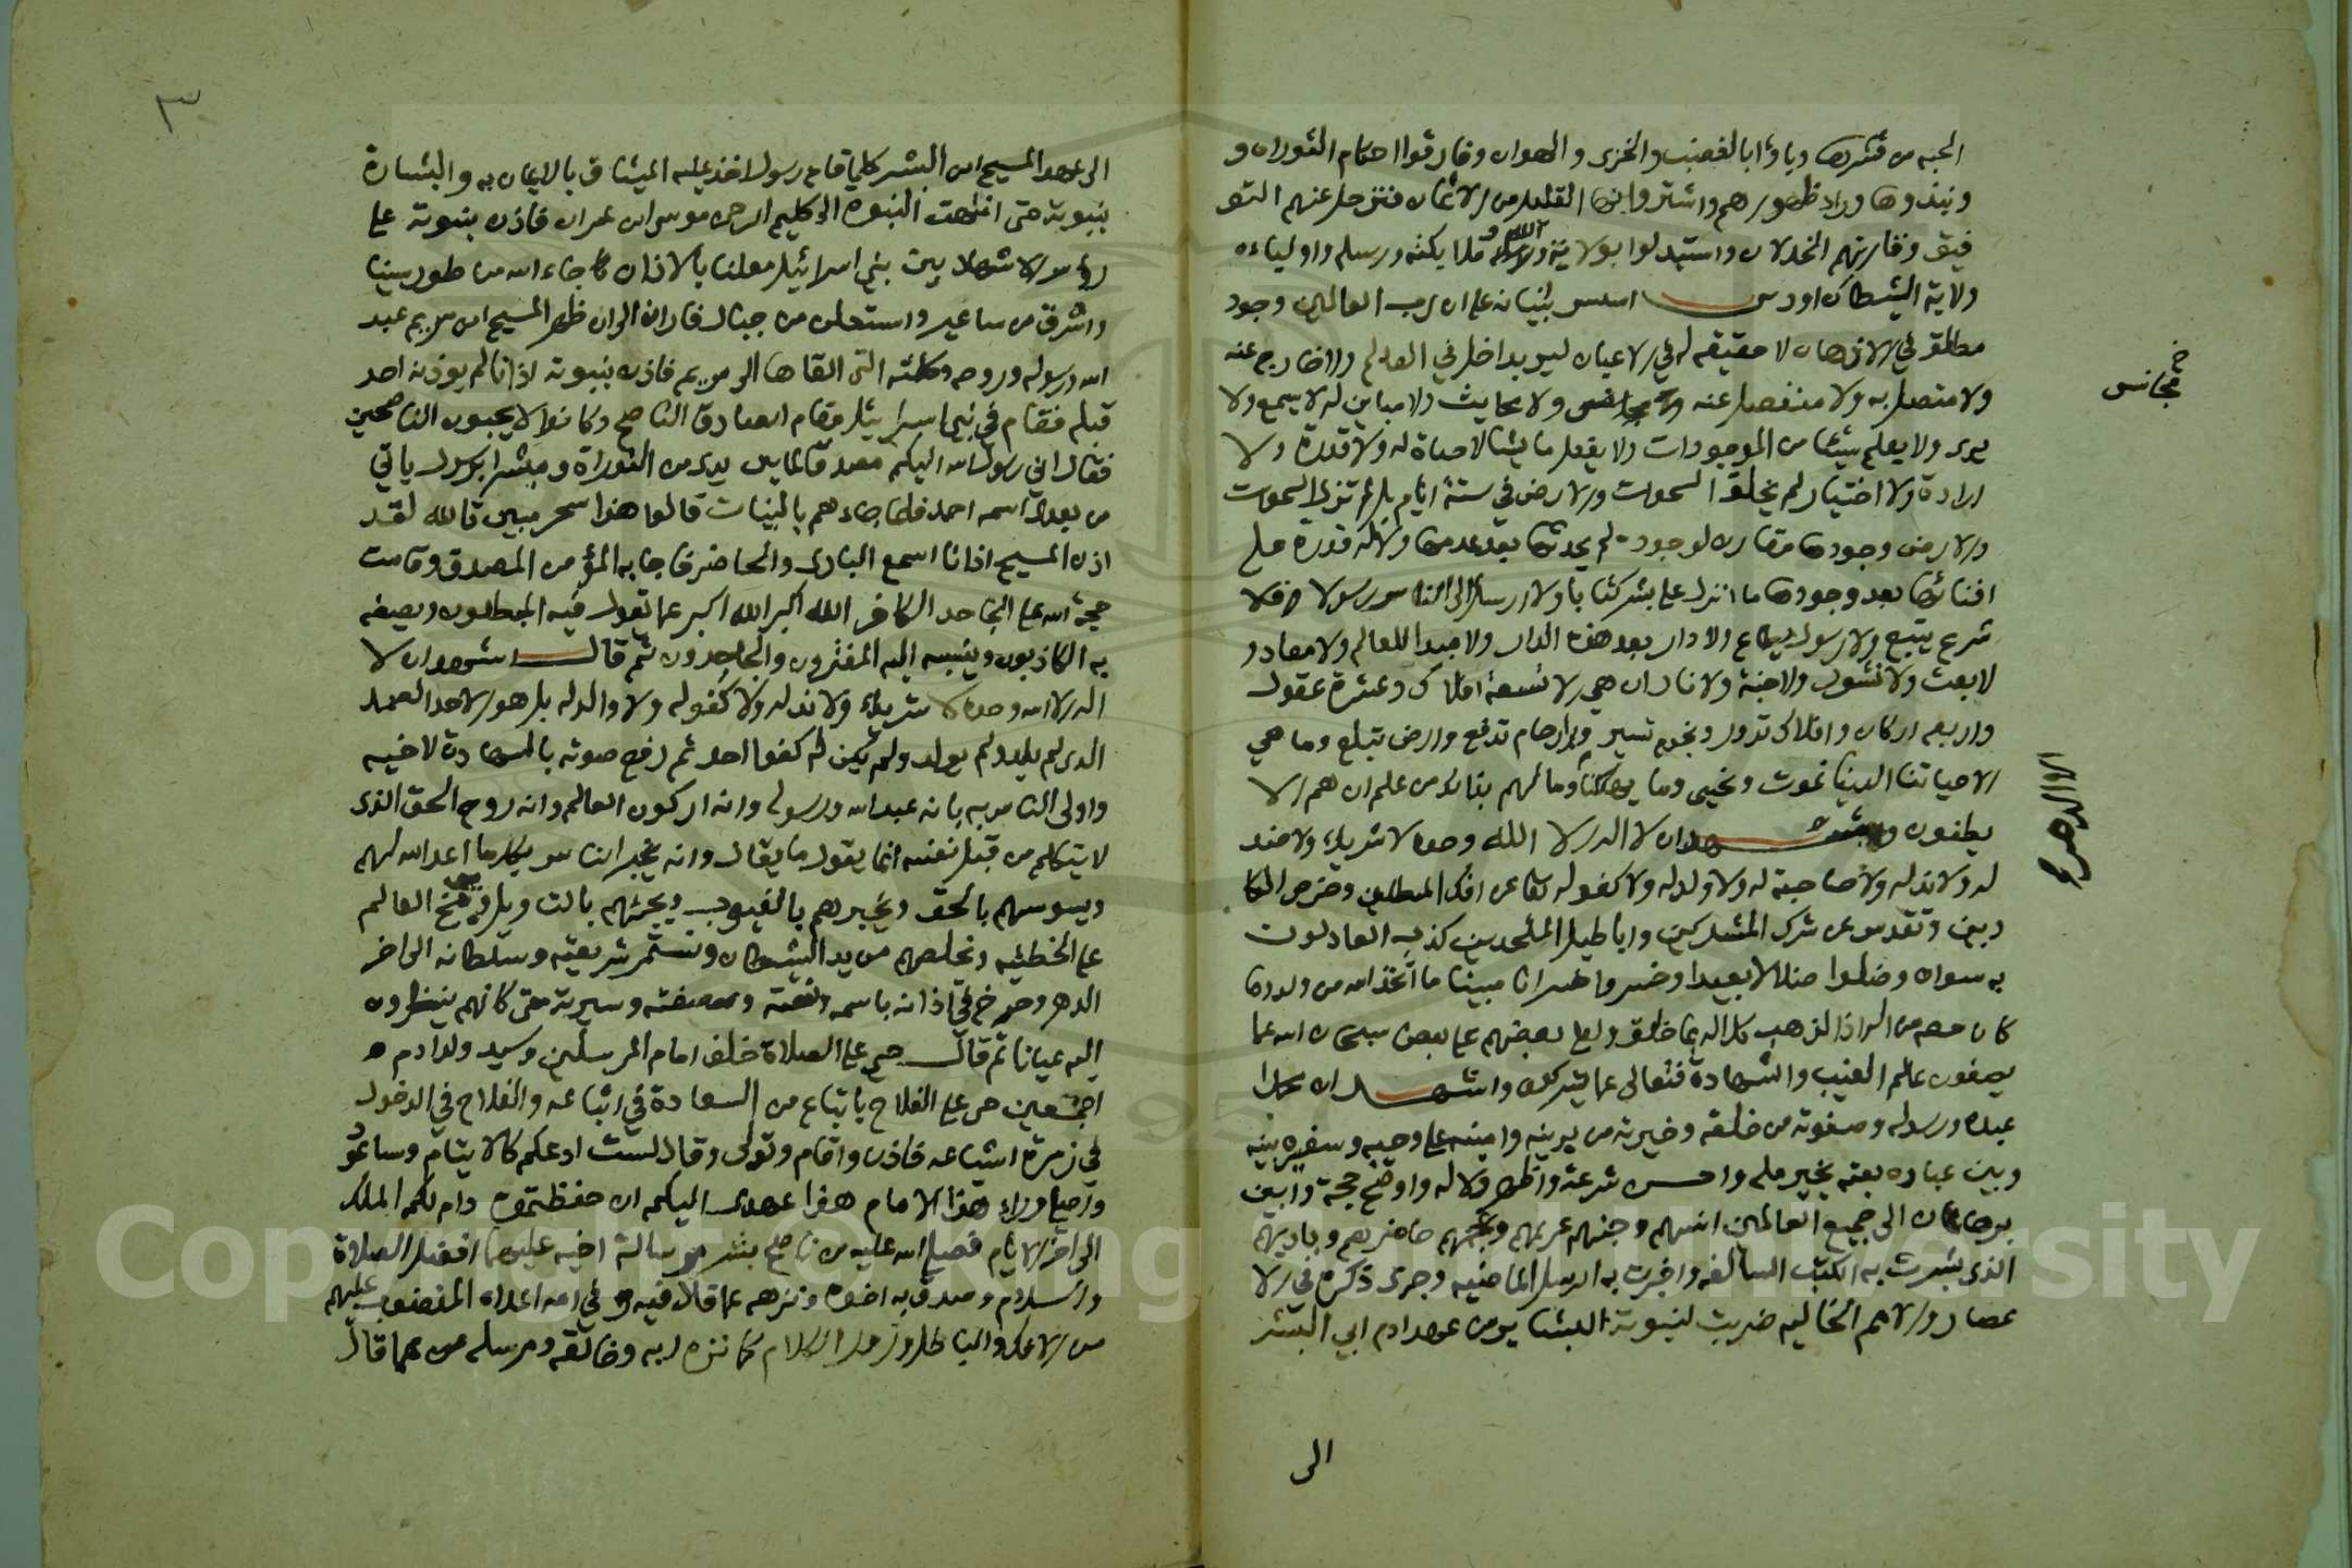 الجنه من قشرها وباؤا بالغضب والخزى والهوان وفارقوا احكام التوراه و
ونبذوها وراء ظهورهم واشتروا بها القليل من الاثمان فترحل عنهم التو
فيق وقارنهم الخذلان واستبدلوا بولاية الله وملايكته ورسله واوليائه
ولاية الشيطان اسس بنيانه على ان رب العالمين وجود
مطلق في الاذهان لا حقيقه له في الاعيان ليس بداخل في العالم ولا خارج عنه
ولا متصل به ولا منفصل عنه ولا ولا محايث ولا مباين له لا يسمع ولا
مجانس
يرى ولا يعلم شيئا من الموجودات ولا يفعل ما يشا لا حياة له ولا قدرة ولا
ارادة ولا اختيار لم يخلق السموات والارض في ستة ايام بل لم تزل السموات
والارض وجودها مقارن لوجوده لم يحدثها بعد عدمها ولا له قدرة على
افنائها بعد وجودها ما انزل على بشر كتابا ولا ارسل الى الناس رسولا فلا
شرع يتبع ولا رسول يطاع ولا دار بعد هذه الدار ولا مبدا للعالم ولا معاد و
لا بعث ولا نشور ولا جنة ولا نار ان هي الا تسعة افلاك وعشرة عقول
واربعه اركان وافلاك تدور ونجوم تسير وارحام تدفع وارض تبلع وما هي
الا حياتنا الدنيا نموت ونحيى وما يهلكنا وما لهم بذلك من علم ان هم الا
الا الدهر
يظنون واشهد ان لا اله الا الله وحده لا شريك له ولا ضد
له ولا ند له ولا صاحبة له ولا ولد له ولا كفو له تعالى عن افك المبطلين وخرص الكا
ذبين وتقدس عن شرك المشركين واباطيل الملحدين كذب العادلون
به سواه وضلوا ضلالا بعيدا وخسروا خسرانا مبينا ما اتخذ الله من ولد وما
كان معه من اله اذا لذهب كل اله بما خلق ولعلا بعضهم على بعض سبحان الله عما
يصفون عالم الغيب والشهادة فتعالى عما يشركون واشهد ان محمدا
عبده ورسوله وصفوته من خلقه وخيرته من بريته وامينه على وحيه وسفيره بينه
وبين عباده بعثه بخير ملة واحسن شرعة واظهر دلالة واوضح حجة وابين
برهان الى جميع العالمين انسهم وجنهم عربهم وعجمهم حاضرهم وباديهم
الذى بشرت به الكتب السالفه واخبرت به الرسل الماضيه وجرى ذكره في الا
عصار والامم الخاليه ضربت لنبوته البشاير من عهد ادم ابي البشر
الى
٣
الى عهد المسيح ابن البشر كلما قام رسول اخذ عليه الميثاق بالايمان به والبشارة
بنبوته حتى انتهت النبوه الى كليم الرحمن موسى ابن عمران فاذن بنبوته على
رؤس الاشهاد بين بني اسرائيل معلنا بالاذان جاء الله من طور سينا
واشرق من ساعير واستعلن من جبال فاران الى ان ظهر المسيح ابن مريم عبد
الله ورسوله وروحه وكلمته التى القاها الى مريم فاذن بنبوته اذانا لم يوذنه احد
قبله فقام في بني اسرائيل مقام الصادق الناصح وكانوا لا يحبون الناصحين
فقال اني رسول الله اليكم مصدقا لما بين يدى من التوراة ومبشرا برسول ياتي
من بعدى اسمه احمد فلما جاءهم بالبينات قالوا هذا سحر مبين تالله لقد
اذن المسيح اذانا اسمع البادى والحاضر فاجابه المؤمن المصدق وقامت
حجة الله على الجاحد الكافر الله اكبر الله اكبر عما تقول فيه المبطلون ويصفه
به الكاذبون وينسبه اليه المفترون والجاحدون ثم قال اشهد ان لا
اله الا الله وحده لا شريك له ولا ند له ولا كفو له ولا والد له بل هو الاحد الصمد
الذى لم يلد ولم يولد ولم يكن له كفوا احد ثم رفع صوته بالشهادة لاخيه
واولى الناس به بانه عبد الله ورسوله وانه اركون العالم وانه روح الحق الذى
لا يتكلم من قبل نفسه انما يقول ما يقال وانه يخبر الناس بكل ما اعد الله لهم
ويسوسهم بالحق ويخبرهم بالغيوب ويجئهم بالتاويل ويوبخ العالم
على الخطيه ويخلصهم من يد الشيطان وتستمر شريعته وسلطانه الى اخر
الدهر وصرخ في اذانه باسمه ونعته وصفته وسيرته حتى كانهم ينظرون
اليه عيانا ثم قال حي على الصلاة خلف امام المرسلين وسيد ولد ادم
اجمعين حى على الفلاح باتباع من السعادة في اتباعه والفلاح في الدخول
في زمرة اشياعه فاذن واقام وتولى وقال لست ادعكم كالايتام وساعود
واصلي وراء هذا الامام هذا عهدى اليكم ان حفظتموه دام لكم الملك
الى اخر الايام فصلى الله عليه من ناصح بشر برسالة اخيه عليهما افضل الصلاة
والسلام وصدق به اخوه ونزهه عما قال فيه وفي امه اعداه المغضوب عليهم
من الافك والباطل وزور الكلام كما نزه ربه وخالقه ومرسله عما قال